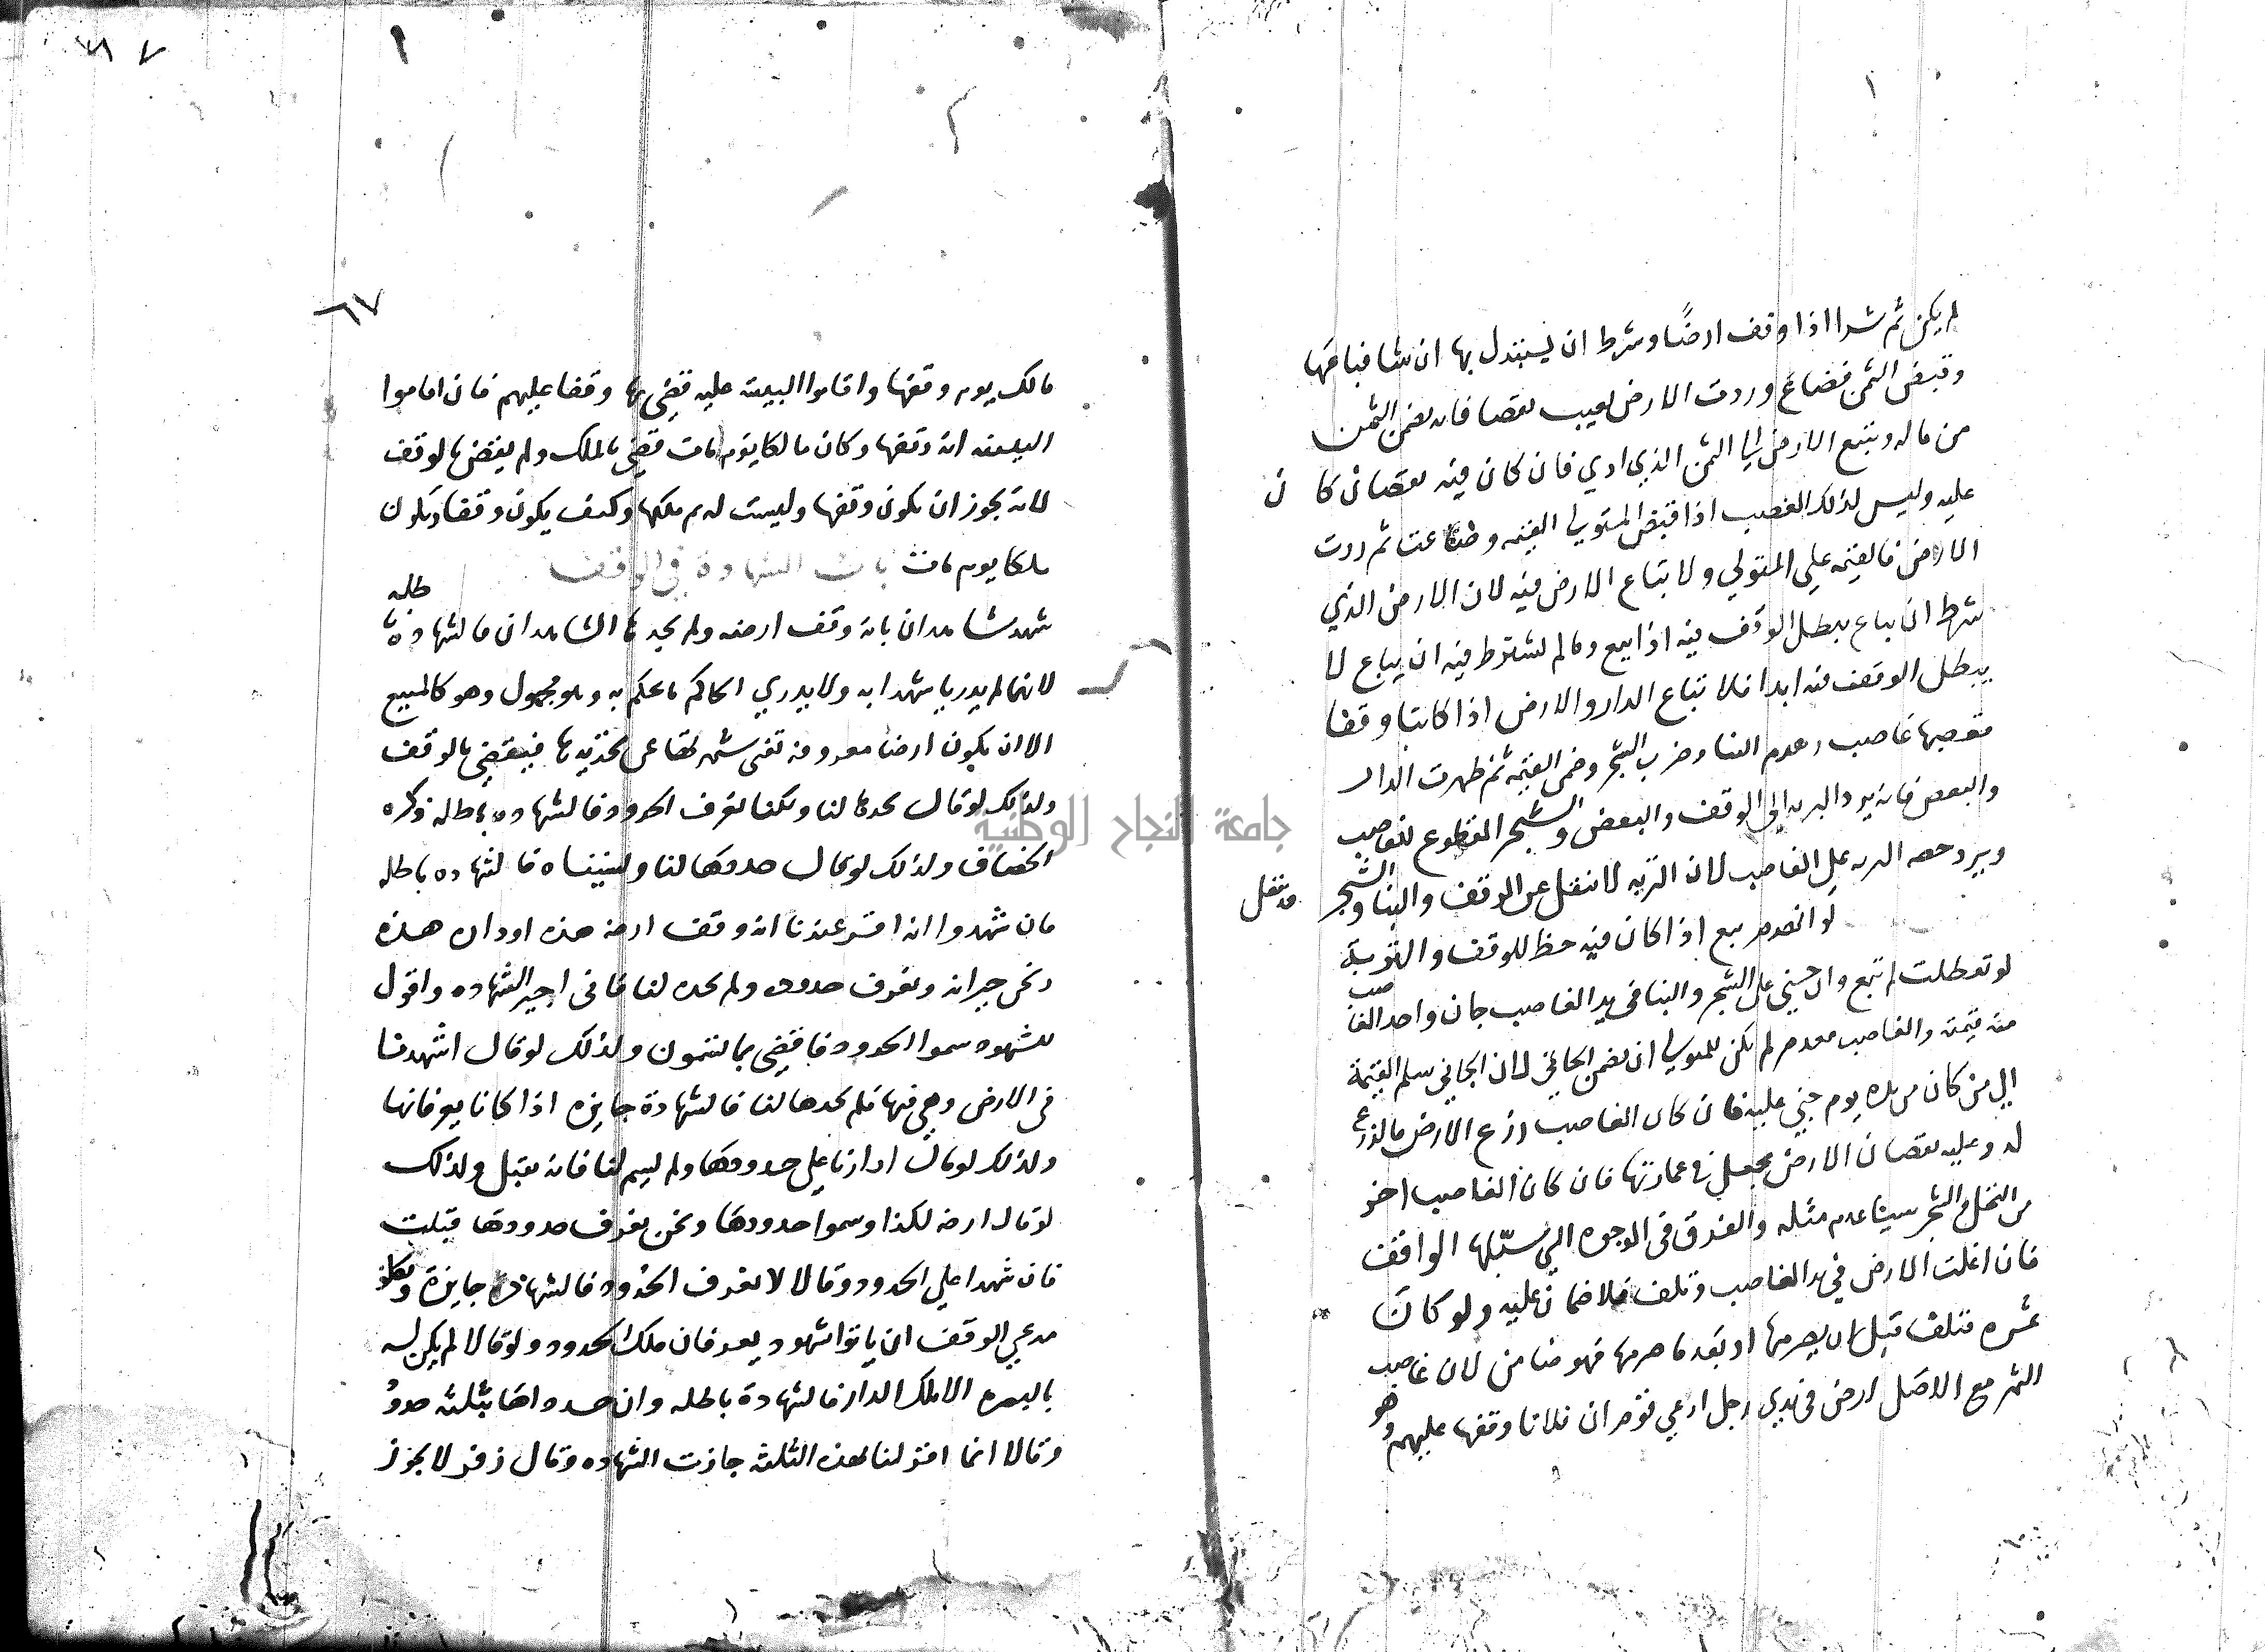 لم يكن ثم شرا اذا وقف ارضًا وشرط ان يستبدل بها ان شا فباعها
وقبض الثمن فضاع وردت الارض بعيب بقضا فانه يضمن الثمن
من ماله ويتبع الارض في الثمن الذي ادي فان كان فيه نقصان كان
عليه وليس كذلك الغصب اذا قبض المتولي القيمه وضاعت ثم ردت
الارض فالقيمه علي المتولي ولا تباع الارض فيه لان الارض الذي
شرط ان يباع يبطل الوقف فيه اذا بيع ومالم يشترط فيه ان يباع لا
يبطل الوقف فيه ابدا فلا تباع الدار والارض اذا كانتا وقفا
فغصبها غاصب وهدم البنا وضرب الشجر وضمن القيمه ثم ظهرت الدار
والبعض فانه يرد التربه الي الوقف والبعض والشجر المقطوع للغاصب
ويرد حصه التربه علي الغاصب لان التربه لا تنقل عن الوقف والبنا والشجر قد تنقل
لو انهدم بيع اذا كان فيه حظ للوقف والتربة
لو تعطلت لم تبع وان جني علي الشجر والبنا في يد الغاصب جان واخذ الغاصب
منه قيمته والغاصب معدم لم يكن للمتولي ان يضمن الجاني لان الجاني سلم القيمة
الي من كان في يده يوم جني عليه فان كان الغاصب زرع الارض فالزرع
له وعليه نقصان الارض يجعل في عمارتها فان كان الغاصب اخذ
من النخل والشجر شيئا غرم مثله والفرق في الوجوه التي سبلها الواقف
فان اغلت الارض في يد الغاصب وتلف فلا ضمان عليه ولو كان
ثمره فتلف قبل ان يصرمها او بعد ما صرمها فهو ضامن لان غاصب
الثمر مع الاصل ارض في يدي رجل ادعي قوم ان فلانا وقفها عليهم وهو
٦٧
مالك يوم وقفها واقاموا البينه عليه قضي بها وقفا عليهم فان اقاموا
البينه انه وقفها وكان مالكا يوم مات قضي بالملك ولم يقض بالوقف
لانه يجوز ان يكون وقفها وليست له ثم ملكها وكيف يكون وقفا ويكون
ملكا يوم مات باب الشهادة في الوقف
شهد شاهدان بانه وقف ارضه ولم يحدها الشاهدان فالشهادة باطله
لانهما لم يدريا شهدا به ولا يدري الحاكم ما حكم به وهو مجهول وهو كالمبيع
الا ان يكون ارضا معروفه تغني شهرتها عن تحديدها فيقضي بالوقف
وكذلك لو قال حدها لنا ولكنا لا نعرف الحدود فالشهاده باطله ذكره
الخصاف وكذلك لو قال حدودها لنا ونسيناه فالشهاده باطله
فان شهدوا انه اقر عندنا انه وقف ارضه هذه او داره هذه
ونحن جيرانه ونعرف حدوده ولم يحده لنا فاني اجيز الشهاده واقول
للشهود سموا الحدود فاقضي بما يسمون وكذلك لو قال اشهدنا
في الارض وهي فيها فلم يحدها لنا فالشهادة جايزه اذا كانا يعرفانها
وكذلك لو قال ادارنا علي حدودها ولم يسم لنا فانه يقبل وكذلك
لو قال ارضه بكذا وسموا حدودها ونحن نعرف حدودها قبلت
فان شهدا علي الحدود وقالا لا نعرف الحدود فالشهادة جايزة ويكلف
مدعي الوقف ان ياتوا شهود يعرفان ملك الحدود ولو قالا لم يكن له
بالبصره الا ملك الدار فالشهادة باطله وان حدداها بثلثه حدود
وقالا انما اقر لنا بهذه الثلثه جازت الشهاده وقال زفر لا يجوز
جامعة النجاح الوطنية